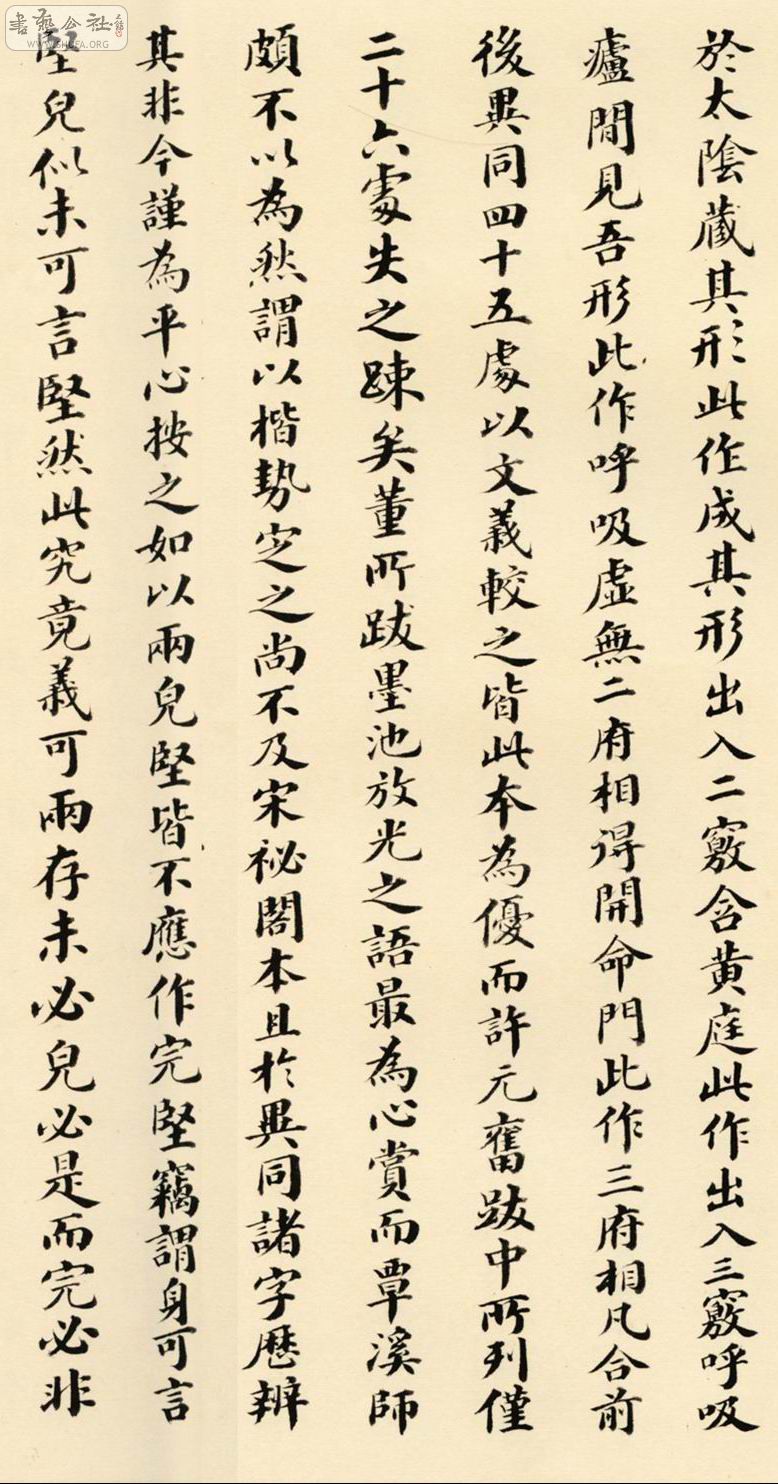 書藝公社
WWW.SHUFA.ORG
於太陰藏其形此作成其形出入二竅含黄庭此作出入三竅呼吸
廬間見吾形此作呼吸虛無二府相得開命門此作三府相凡合前
後異同四十五處以文義較之皆此本為優而許元奮跋中所列僅
二十六處失之踈矣董所跋墨池放光之語最為心賞而覃溪師
頗不以為然謂以楷勢定之尚不及宋祕閣本且於異同諸字歷辨
其非今謹為平心按之如以兩兒堅皆不應作完堅竊謂身可言
堅兒似未可言堅然此究竟義可兩存未必兒必是而完必非